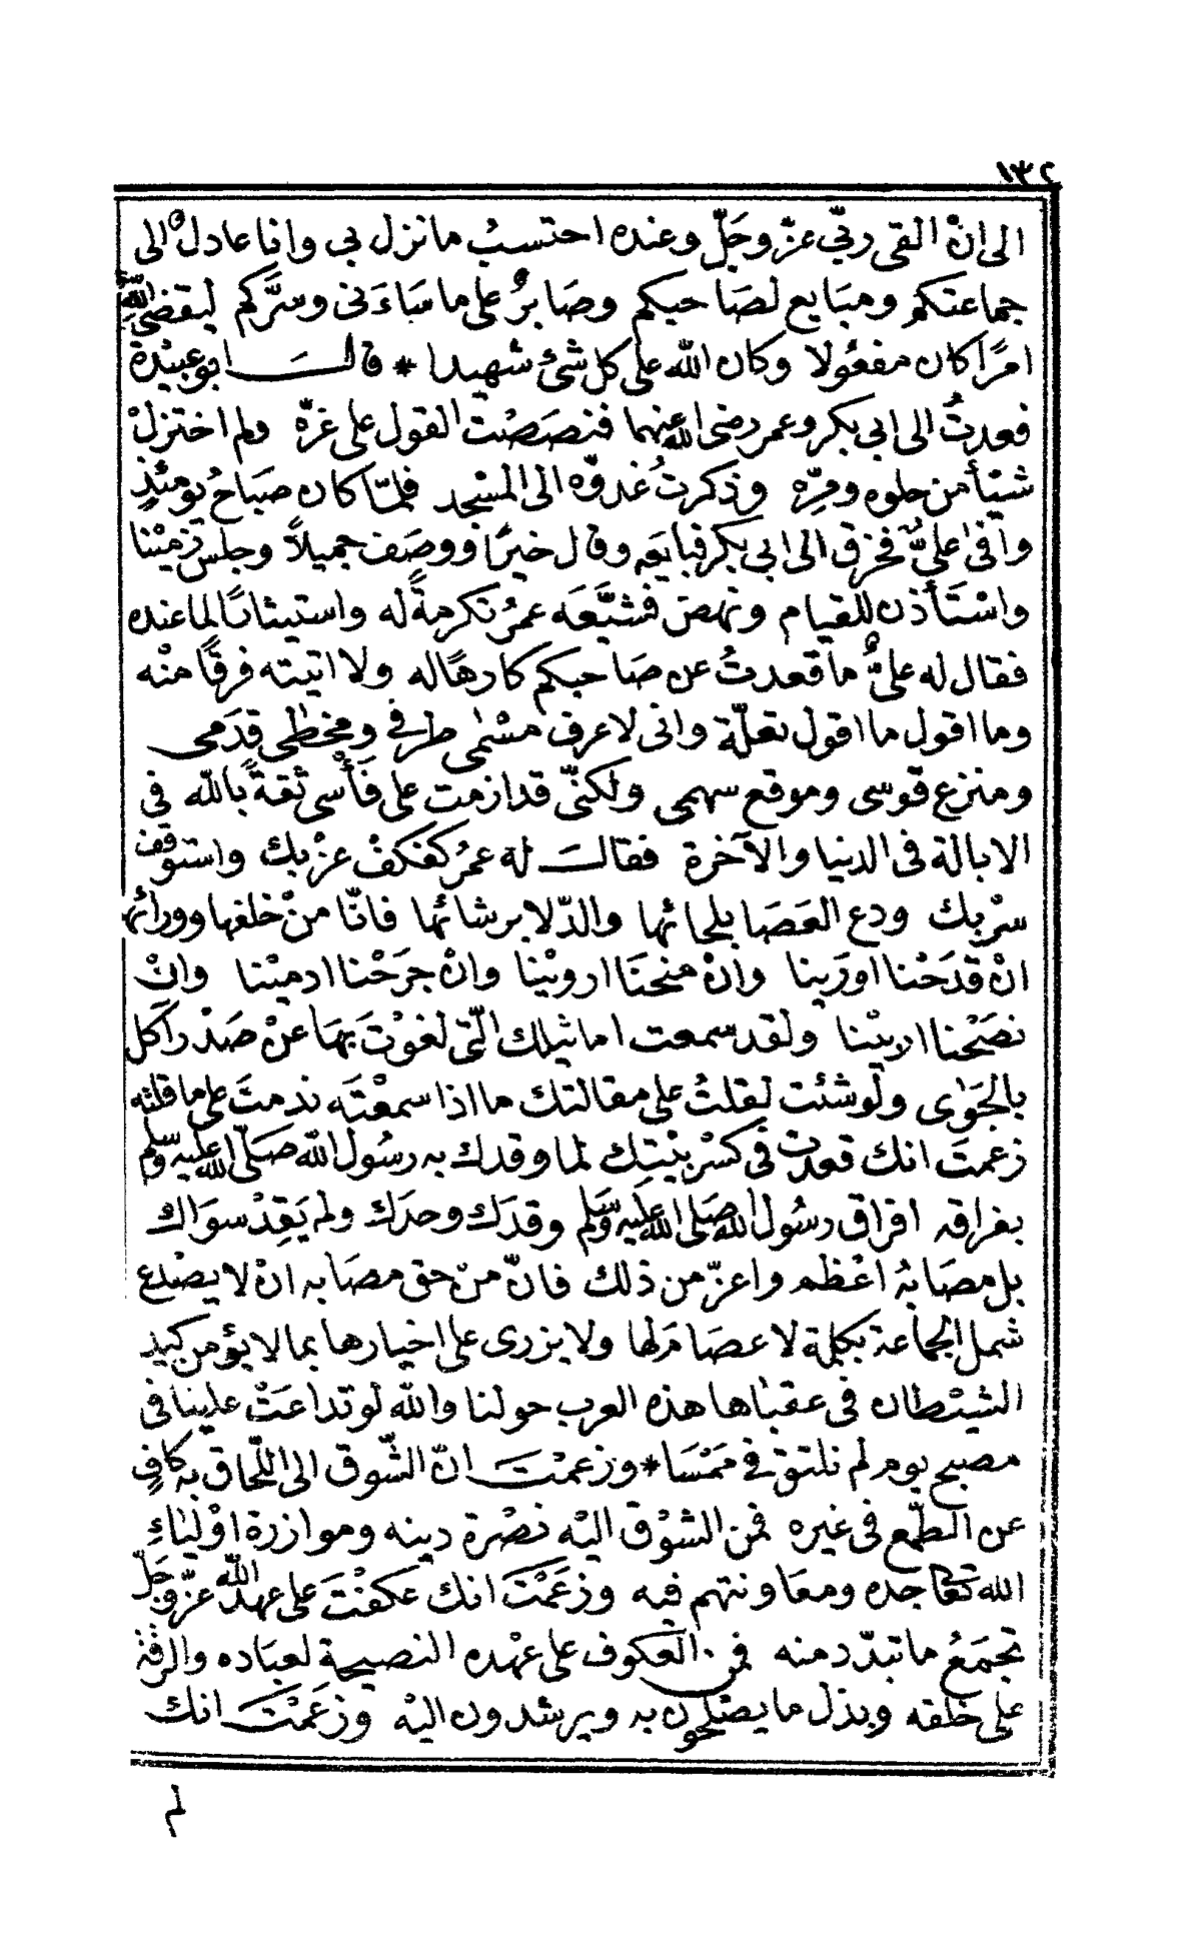 ١٣٢
الى ان القى ربّي عزّ وجَلّ وعنده احتسبُ ما نزل بي وانا عادلٌ الى
جماعتكم ومبَايع لصَاحبكم وصَابرٌ على ما سَاءَنى وسرَّكم ليقضىَ اللهُ
امرًا كان مفعُولا وكان الله على كل شئ شهيدا * قالَ ابو عبيْدة
فعدتُ الى ابي بكر وعمر رضى الله عنهما فنصَصْت القول على غرّه ولم اختزلْ
شيْأ من حلوه ومرّه وذكرتُ غدوّه الى المسْجد فلمّا كان صبَاحُ يومئذٍ
وافى علىٌّ فخرق الى ابي بكر فبايَعه وقال خيرًا ووصَف جميلاً وجلس زمِيْنا
واسْتَأذن للقيام ونهض فشيَّعَه عمرُ تكرمةً له واستيثاثًا لما عنده
فقال له علىٌّ ما قعدتُ عن صَاحبكم كارهًا له ولا اتيته فرقًا منْه
وما اقول ما اقول تعلّة وانى لاعرف مسْمٰى طرفي ومخطٰى قدَمى
ومنزع قوسى وموقع سهمى ولكنّى قد ازمت على فَأْسى ثقةً بالله فى
الابالة فى الدنيا والآخرة فقالَ له عمرُ كفكفْ غرْبك واستوقف
سرْبك ودع العَصَا بلحائها والدّلا برشائها فانّا منْ خلفها وورائها
انْ قدَحْنا اورَينا وانْ منحنَا اروَيْنا وانْ جرَحْنا ادميْنا وانْ
نصَحْنا اربيْنا ولقد سمعت اماثيلك الّتى لغوْتَ بهَا عنْ صَدْر أكل
بالجَوٰى ولوشئت لقلتُ على مقالتك ما اذا سمعْتَه ندمتَ على ما قلته
زعمتَ انك قعدت فى كسْر بيْتِك لما وقدك به رسُول الله صَلّى الله عليه وسلّم
بفراقه افراق رسُول الله صَلى الله عليه وسَلم وقدَك وحدَك ولم يَقِدْ سوَاك
بل مصَابهُ اعْظم واعزّ من ذلك فانّ منْ حق مصَابه انْ لا يصْدع
شمل الجماعة بكلمة لا عصَامَ لها ولا يزرى على اخيارها بما لا يؤمن كيد
الشيْطان فى عقبٰاها هذه العرب حولنا والله لو تداعَتْ علينا فى
مصبح يوم لم نلتق فى ممْسَا * وزعمْتَ انّ الشّوق الى اللّحاق به كافٍ
عن الطّمع فى غيره فمن الشوْق اليْه نصْرة دينه وموازرة اوْليٰاءِ
الله تعَالى جده ومعَاونتهم فيه وزعَمْتَ انك عكفْتَ على عهد الله عزّ وجَلّ
تجمَعُ ما تبدّد منه فمن العكوف على عهْده النصيحة لعبَاده والرقة
على خلقه وبذل ما يصْلحون به ويرشدون اليْه وزعَمْتَ انك
لم